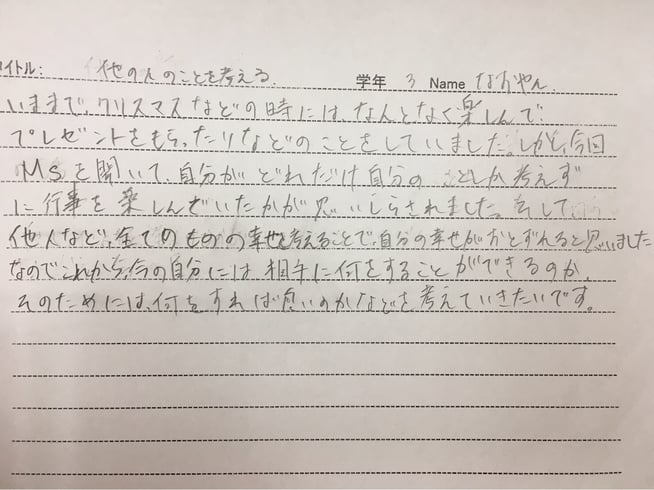 イトル: 他の人のことを考える. 学年 3 Name なおやん.
いままで、クリスマスなどの時には、なんとなく楽しんで
プレゼントをもらったりなどのことをしていました。しかし、今回
Msを聞いて、自分がどれだけ自分のことしか考えず
に行事を楽しんでいたかが思いしらされました。そして
他人など、全てのものの幸せを考えることで、自分の幸せがおとずれると思いました
なのでこれから、今の自分には、相手に何をすることができるのか、
そのためには、何をすれば良いのかなどを考えていきたいです。